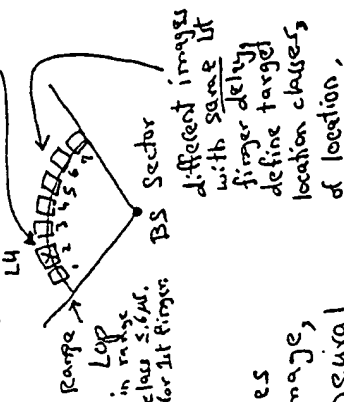 L4
1 2 3 4 5 6 7
Range
LOP
in range
class ≤.6μs.
for 1st finger.
BS Sector
different images
with same 1st
finger delay,
define target
location classes,
of location,
es
mage,
neural